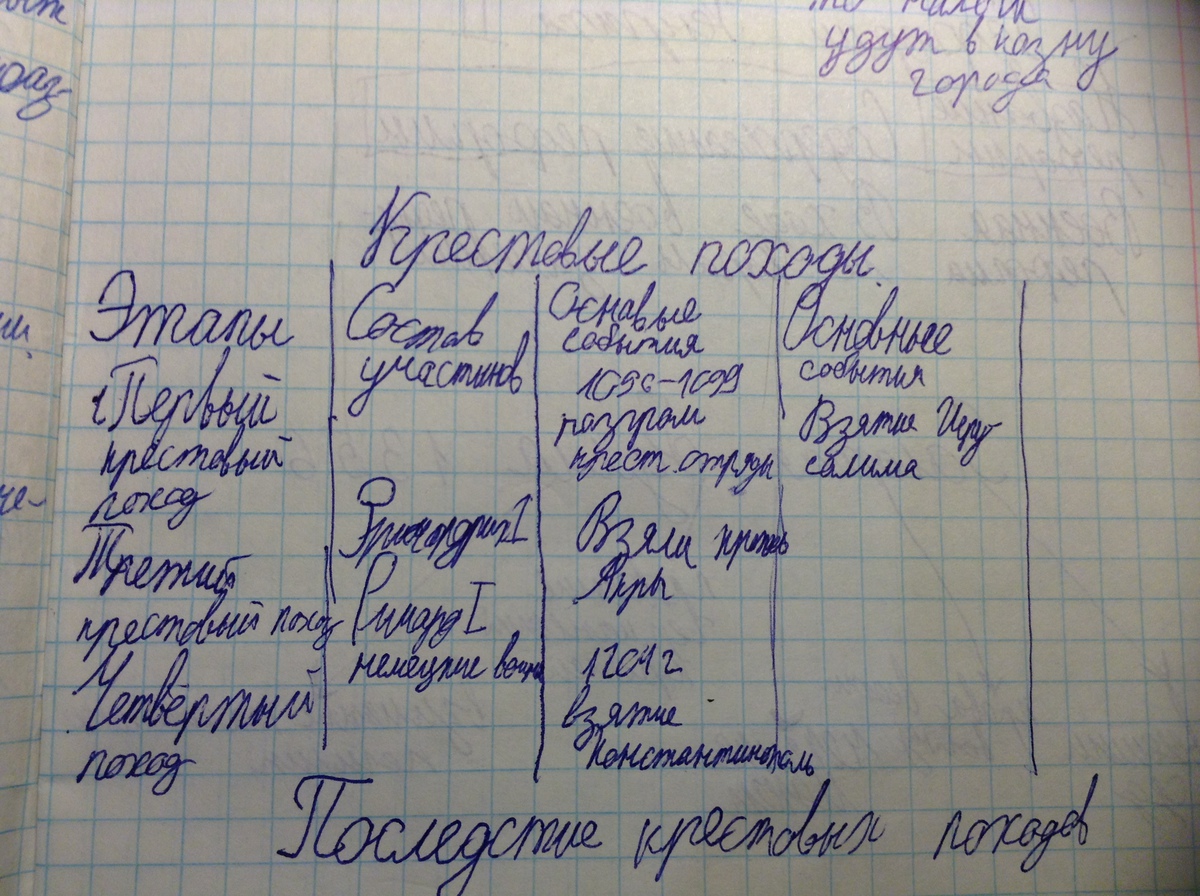 удут в казну
города
Крестовые походы.
Этапы
Состав
участников
Оснавые
события
Основные
события
1 Первый
крестовый
поход
1096-1099
разгром
крест. отряды
Взятие Иеру-
салима
Третий
крестовый поход
I
Ричард I
немецкие воины
Взяли крепость
Акры
Четвёртый
поход
1204 г
взятие
Константинополь
Последстие крестовых походов